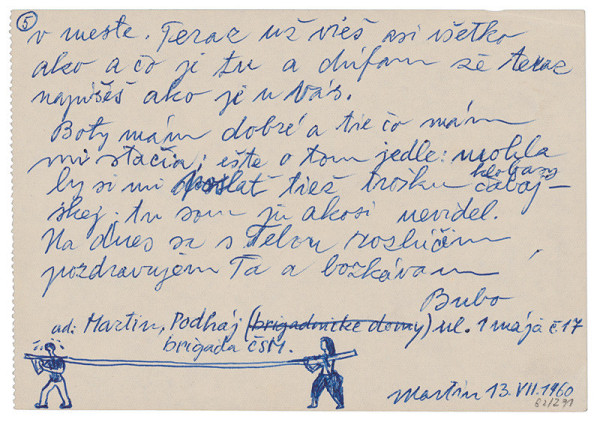 5
v meste. Teraz už vieš asi všetko
ako a čo je tu a dúfam že teraz
napíšeš ako je u Vás.
Boty mám dobré a tie čo mám
mi stačia; ešte o tom jedle: mohla
by si mi poslať tiež trošku klobásy čabaj-
skej; tu som ju akosi nevidel.
Na dnes sa s Tebou rozlúčim,
pozdravujem Ta a božkávam
Bubo
ad: Martin, Podháj (brigadnické domy) ul. 1 mája č. 17
brigáda ČSM.
Martin 13. VII. 1960
62/291